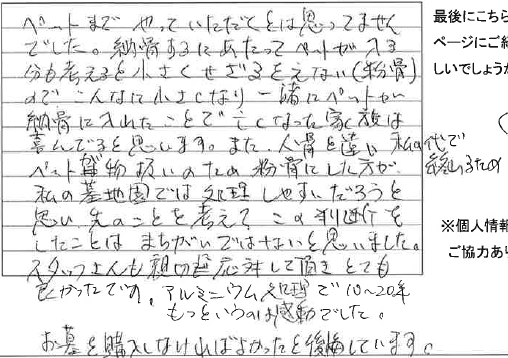 ペットまでやっていただくとは思ってません
でした。納骨するにあたってペットが入る
分も考えると小さくせざるをえない(粉骨)
のでこんなに小さくなり一緒にペットが
納骨に入れたことで亡くなった家族は
喜んでると思います。また、人骨と違い私の代で
ペット 物扱いのため粉骨にした方が 終しるため
私の墓地園では処理しやすいだろうと
思い先のことを考えてこの判断を
したことはまちがいではないと思いました。
スタッフさんも親切 応対して頂きとても
良かったです。アルミニウム処理で10~20年
もっというのは感動でした。
お墓を購入しなければよかったと後悔しています。
最後にこちら
ページにご紹
しいでしょうか
※個人情報
ご協力あり